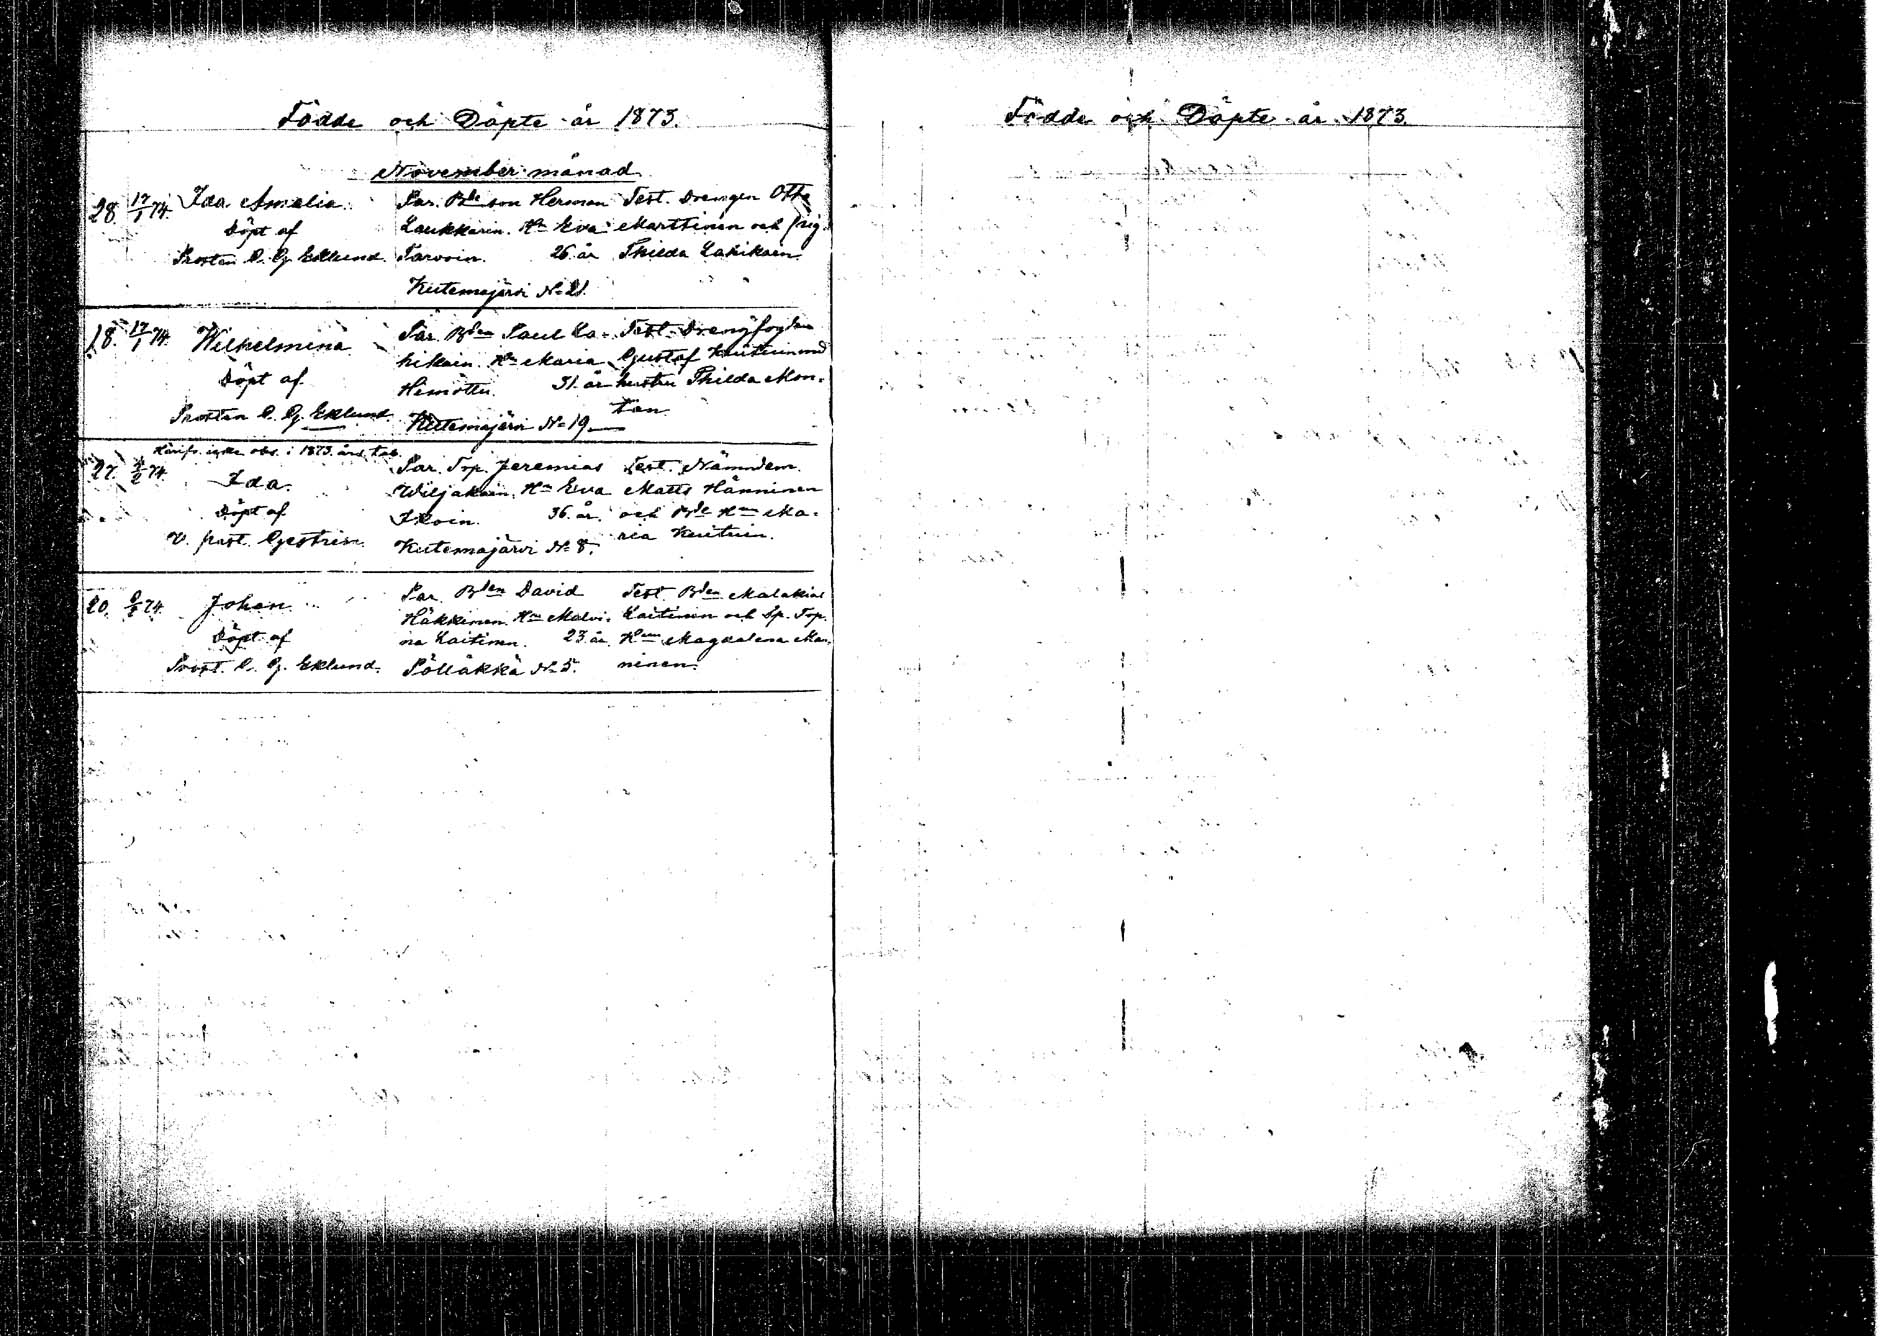 Födde och Döpte år 1873.
November månad
28. 17/1 74. Ida Amalia.
Döpt af
Prosten C. G. Eklund.
Par. Bde son Herman
Laukkarin. Hn Eva
Tarvoin. 26 år
Kutemajärvi No 21.
Test. Drengen Otto
Marttinen och pig.
Thilda Lahikain
18. 17/1 74. Wilhelmina
Döpt af
Prosten C. G. Eklund
Par. Bden Paul La-
hikain. Hn Maria
Hemottu. 31. år
Kutemajärvi No 19
Test. Drengfogden
Gustaf
hustru Thilda Mon-
ton
Härifr. icke obs. i 1873 års tab.
27. 74. Ida.
Döpt af
V. past.
Par. Torp. Jeremias
Wiljakain. Hn Eva
36. år.
Kutemajärvi No 8.
Test. Nämndem.
Matts Hänninen
och Bde Hun Ma-
ria
20. 74. Johan
Döpt af
Prost. C. G. Eklund.
Par. Bden David
Häkkinen. Hn Malvi-
na Laitinen. 23 år
Pölläkkä No 5.
Test. Bden Malakias
Laitinen och Sp. Torp.
Hun Magdalena Man-
ninen.
Födde och Döpte år 1873.